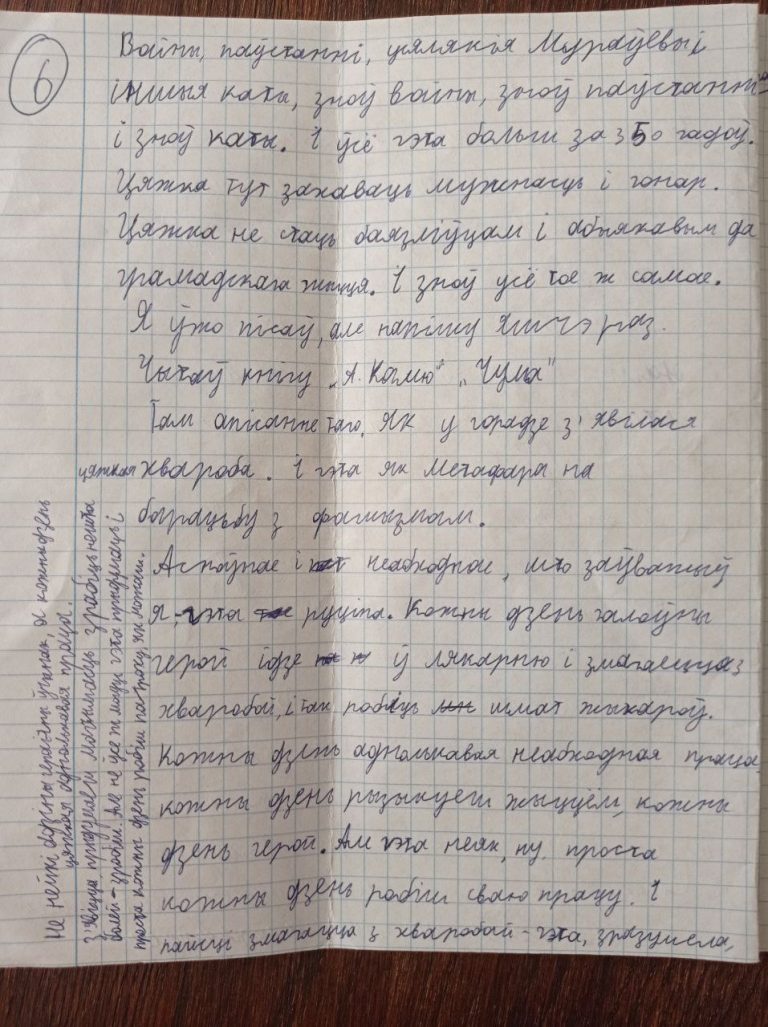 6
Войны, паўстанні, усялякія Мураўёвы і
іншыя каты, зноў войны, зноў паўстанні
і зноў каты. І ўсё гэта больш за 350 гадоў.
Цяжка тут захаваць мужнасць і гонар.
Цяжка не стаць баязліўцам і абыякавым да
грамадскага жыцця. І зноў усё тое ж самае.
Я ўжо пісаў, але напішу яшчэ раз.
Чытаў кнігу "А. Камю" "Чума"
Там апісанне таго, як у горадзе з'явілася
цяжкая хвароба. І гэта як метафара на
барацьбу з фашызмам.
Аспоўнае і неабходнае, што заўважыў
я, - гэта руціна. Кожны дзень галоўны
герой ідзе ў лякарню і змагаецца з
хваробай, і так робіць шмат жыхароў.
Кожны дзень аднолькавая неабходная праца,
кожны дзень рызыкуеш жыццём, кожны
дзень герой. Але гэта неяк, ну, проста
кожны дзень робіш сваю працу. І
пайсці змагацца з хваробай - гэта, зразумела,
Не нейкі адзіны учынак, а кожны дзень
цяжкая аднолькавая праца.
З'явіцца магчымасць зрабіць нешта
болей - зрабім. Але не ўсе ж людзі гэта
проста кожны дзень робім працу, як можам.